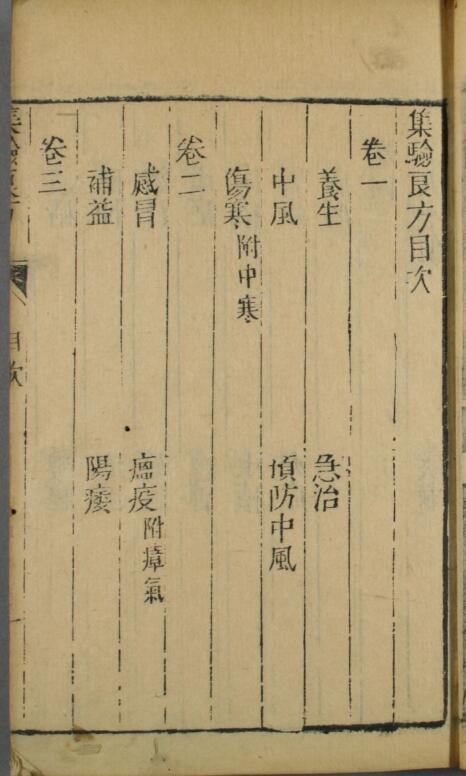 集驗良方目次
卷一
養生 急治
中風 預防中風
傷寒附中寒
卷二
感冒 瘟疫附瘴氣
補益 陽痿
卷三
集驗良方 目次 一